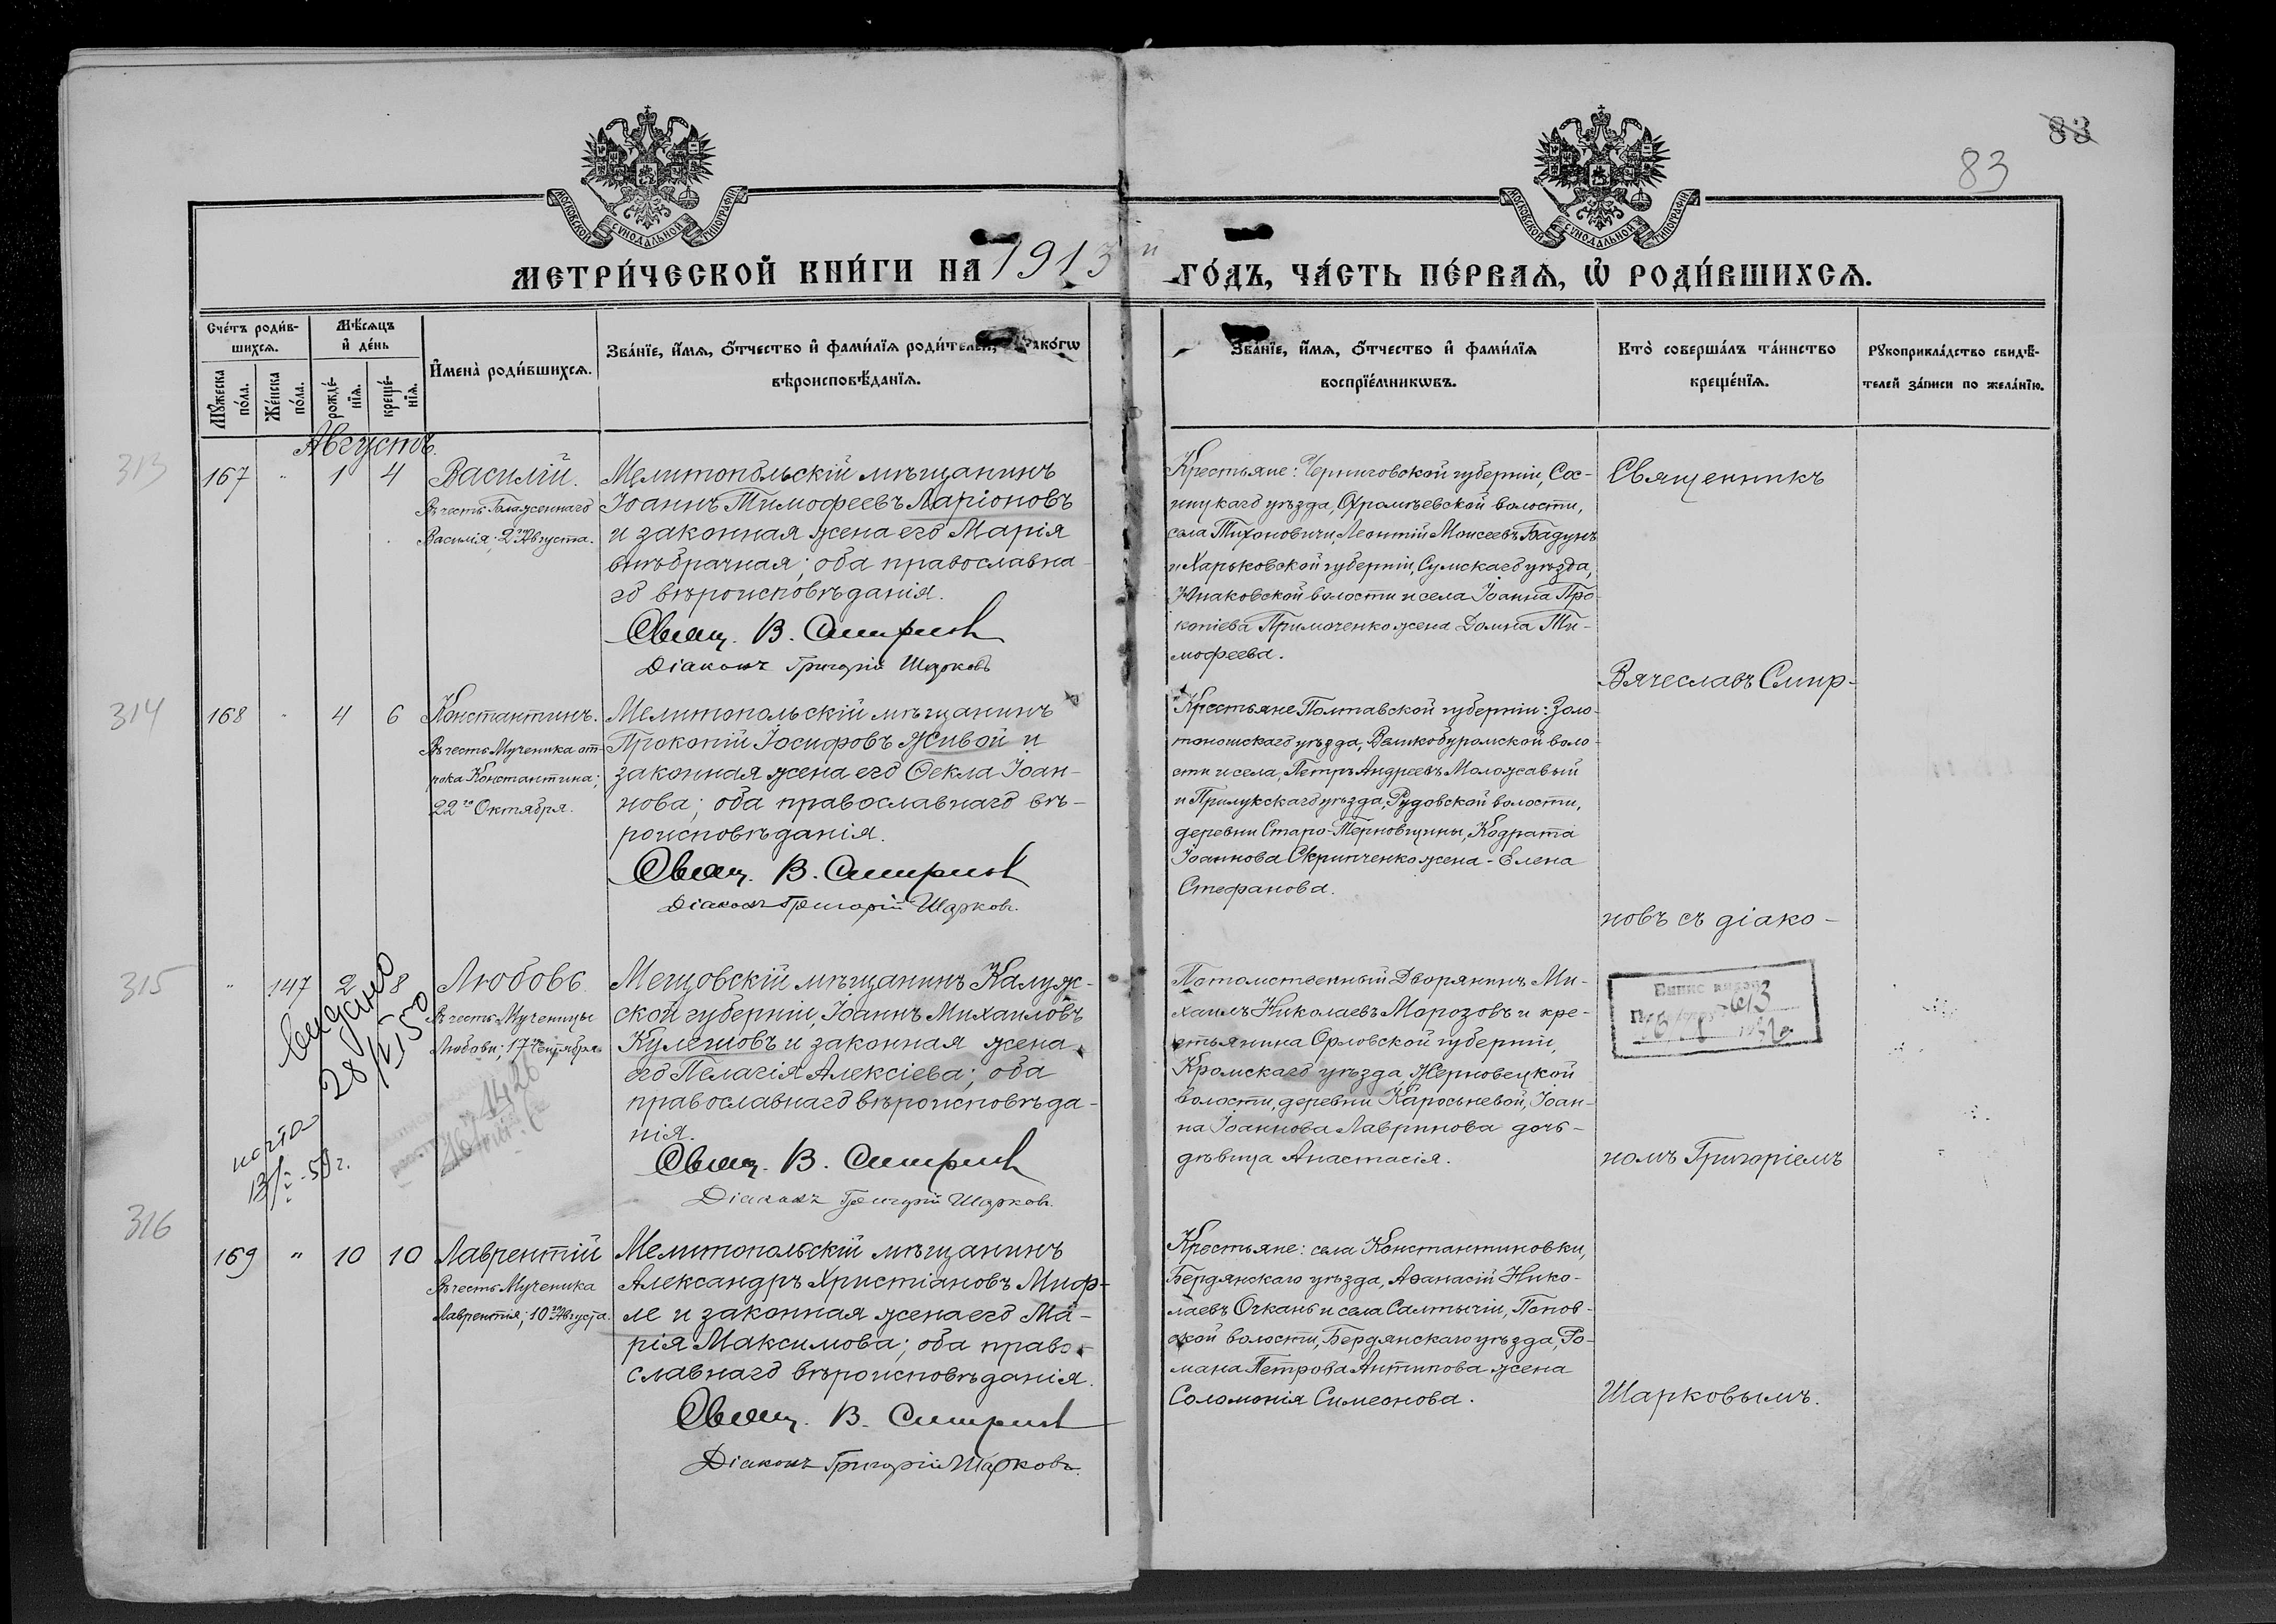 83
83
МОСКОВСКОЙ СѴНОДАЛЬНОЙ ТИПОГРАФІИ
МОСКОВСКОЙ СѴНОДАЛЬНОЙ ТИПОГРАФІИ
МЕТРИ́ЧЕСКОЙ КНИ́ГИ НА 1913й ГО́ДЪ, ЧА́СТЬ ПЕ́РВАѦ, Ѡ҆ РОДИ́ВШИХСѦ.
Сче́тъ роди́в-
шихсѧ.
Мꙋ́жеска
по́ла.
Же́нска
по́ла.
Мѣ́сѧцъ
и҆ де́нь
рожде́-
нїѧ.
креще́-
нїѧ.
И҆мена̀ роди́вшихсѧ.
Зва́нїе, и҆́мѧ, ѻ҆́тчество и҆ фами́лїѧ роди́телей, како́гѡ
вѣроисповѣ́данїѧ.
Зва́нїе, и҆́мѧ, ѻ҆́тчество и҆ фами́лїѧ
воспрїе́мникѡвъ.
Кто̀ соверша́лъ та́инство
креще́нїѧ.
Рꙋкоприкла́дство свидѣ́-
телей за́писи по жела́нїю.
Августъ.
313
167 " 1 4
Василій.
Въ честь Блаженнаго
Василія; 2го Августа.
Мелитопольскій мѣщанинъ
Іоаннъ Тимофеевъ Ларіоновъ
и законная жена его Марія
внѣбрачная; оба православна-
го вѣроисповѣданія.
Свящ. В. Смирновъ
Діаконъ Григорій Шарковъ
Крестьяне: Черниговской губерніи, Сос-
ницкаго уѣзда, Охромѣевской волости,
села Тихоновичи, Леонтій Моисеевъ Бадунъ
и Харьковской губерніи, Сумскаго уѣзда,
Юнаковской волости и села Іоанна Про
копіева Примаченко жена Домна Ти-
мофеева.
Священникъ
Вячеславъ Смир-
314
168 " 4 6
Константинъ.
Въ честь Мученика от-
рока Константина;
22го Октября.
Мелитопольскій мѣщанинъ
Прокопій Іосифовъ Живой и
законная жена его Ѳекла Іоан-
нова; оба православнаго вѣ-
роисповѣданія.
Свящ. В. Смирновъ
Діаконъ Григорій Шарковъ.
Крестьяне Полтавской губерніи: Золо-
тоношскаго уѣзда, Великобуромской воло-
сти и села, Петръ Андреевъ Моложавый
и Прилукскаго уѣзда, Рудовской волости,
деревни Старо-Терновщины, Кодрата
Іоаннова Скрипченко жена - Елена
Стефанова.
новъ съ діако-
315
" 147 2 8
Любовь.
Въ честь Мученицы
Любови; 17го Сентября
Мещовскій мѣщанинъ Калуж-
ской губерніи, Іоаннъ Михаиловъ
Кулешовъ и законная жена
его Пелагія Алексіева; оба
православнаго вѣроисповѣда-
нія.
Свящ. В. Смирновъ
Діаконъ Григорій Шарковъ.
Потомственный Дворянинъ Ми-
хаилъ Николаевъ Морозовъ и кре-
стьянина Орловской губерніи,
Кромскаго уѣзда Жерновецкой
волости, деревни Кароськевой, Іоан-
на Іоаннова Лавринова дочь-
дѣвица Анастасія.
номъ Григоріемъ
выдано
28/IV 50
316
169 " 10 10
Лаврентій
Въ честь Мученика
Лаврентія; 10го Августа.
Мелитопольскій мѣщанинъ
Александръ Христіановъ Мифр-
ле и законная жена его Ма-
рія Максимова; оба право-
славнаго вѣроисповѣданія.
Свящ. В. Смирновъ
Діаконъ Григорій Шарковъ.
Крестьяне: села Константиновки,
Бердянскаго уѣзда, Аѳанасій Нико-
лаевъ Очкань и села Салтычіи, Попов-
ской волости, Бердянскаго уѣзда, Ро-
мана Петрова Антипова жена
Соломонія Симеонова.
Шарковымъ.